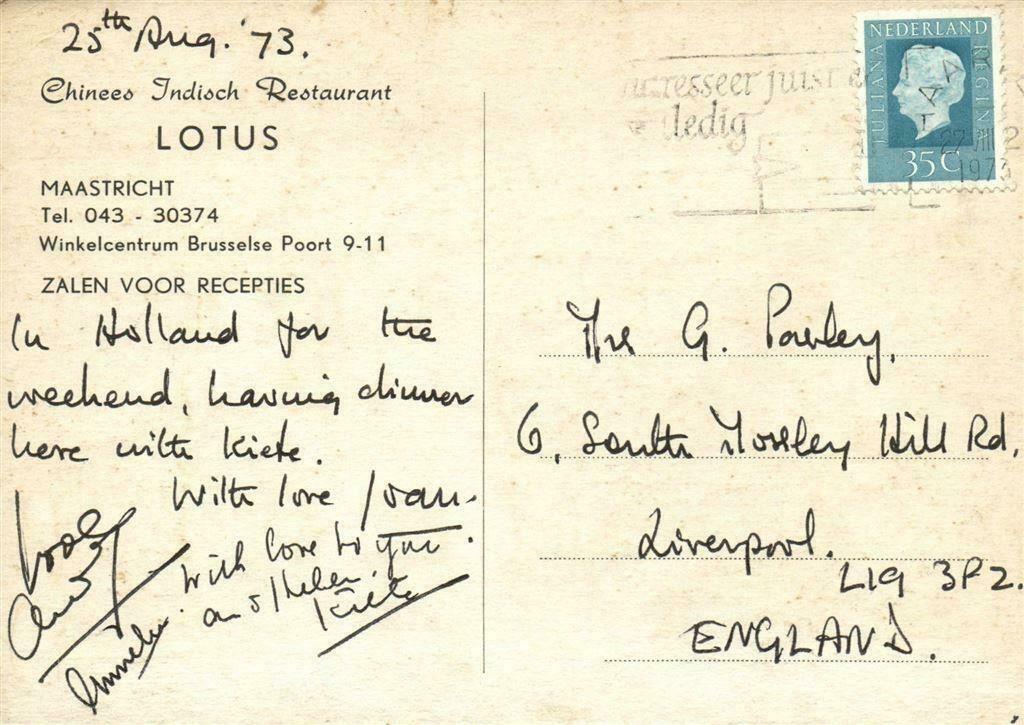 25th Aug. '73.
Chinees Indisch Restaurant
LOTUS
MAASTRICHT
Tel. 043 - 30374
Winkelcentrum Brusselse Poort 9-11
ZALEN VOOR RECEPTIES
In Holland for the
weekend, having dinner
here with Kiete.
With love Joan.
with love to you
and Helen
Kiete
NEDERLAND
JULIANA REGINA
35 C
juist
ledig
27 VIII
1973
Mrs G.
6, South Mossley Hill Rd,
Liverpool.
L19 3PZ.
ENGLAND.